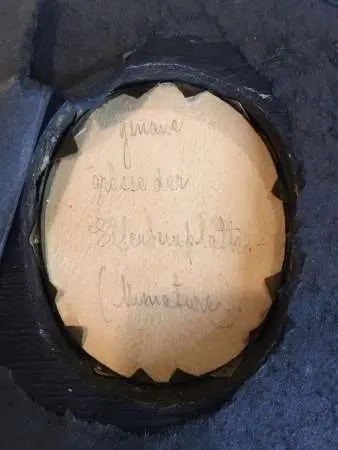 genaue
grösse der
Elfenbeinplatte.-
(Miniature).